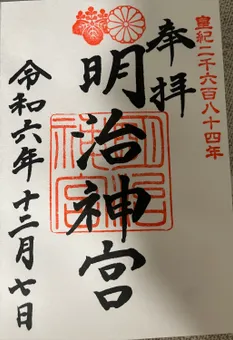 皇紀二千六百八十四年
奉拝
明治神宮
令和六年十二月七日
明治神宮